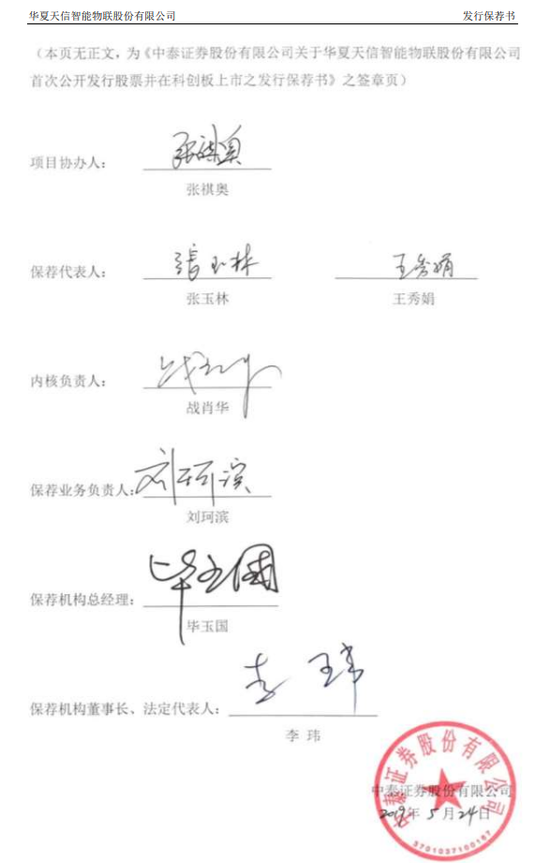 华夏天信智能物联股份有限公司 发行保荐书
（本页无正文，为《中泰证券股份有限公司关于华夏天信智能物联股份有限公司
首次公开发行股票并在科创板上市之发行保荐书》之签章页）
张祺奥
项目协办人：
张祺奥
张玉林 王秀娟
保荐代表人：
张玉林 王秀娟
战肖华
内核负责人：
战肖华
刘珂滨
保荐业务负责人：
刘珂滨
毕玉国
保荐机构总经理：
毕玉国
李玮
保荐机构董事长、法定代表人：
李 玮
中泰证券股份有限公司
中泰证券股份有限公司
2019年 5 月 24 日
3701037100187